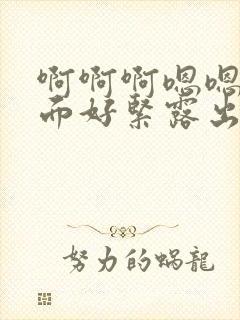 啊啊啊嗯嗯
而好紧露出
努力的蜗龍